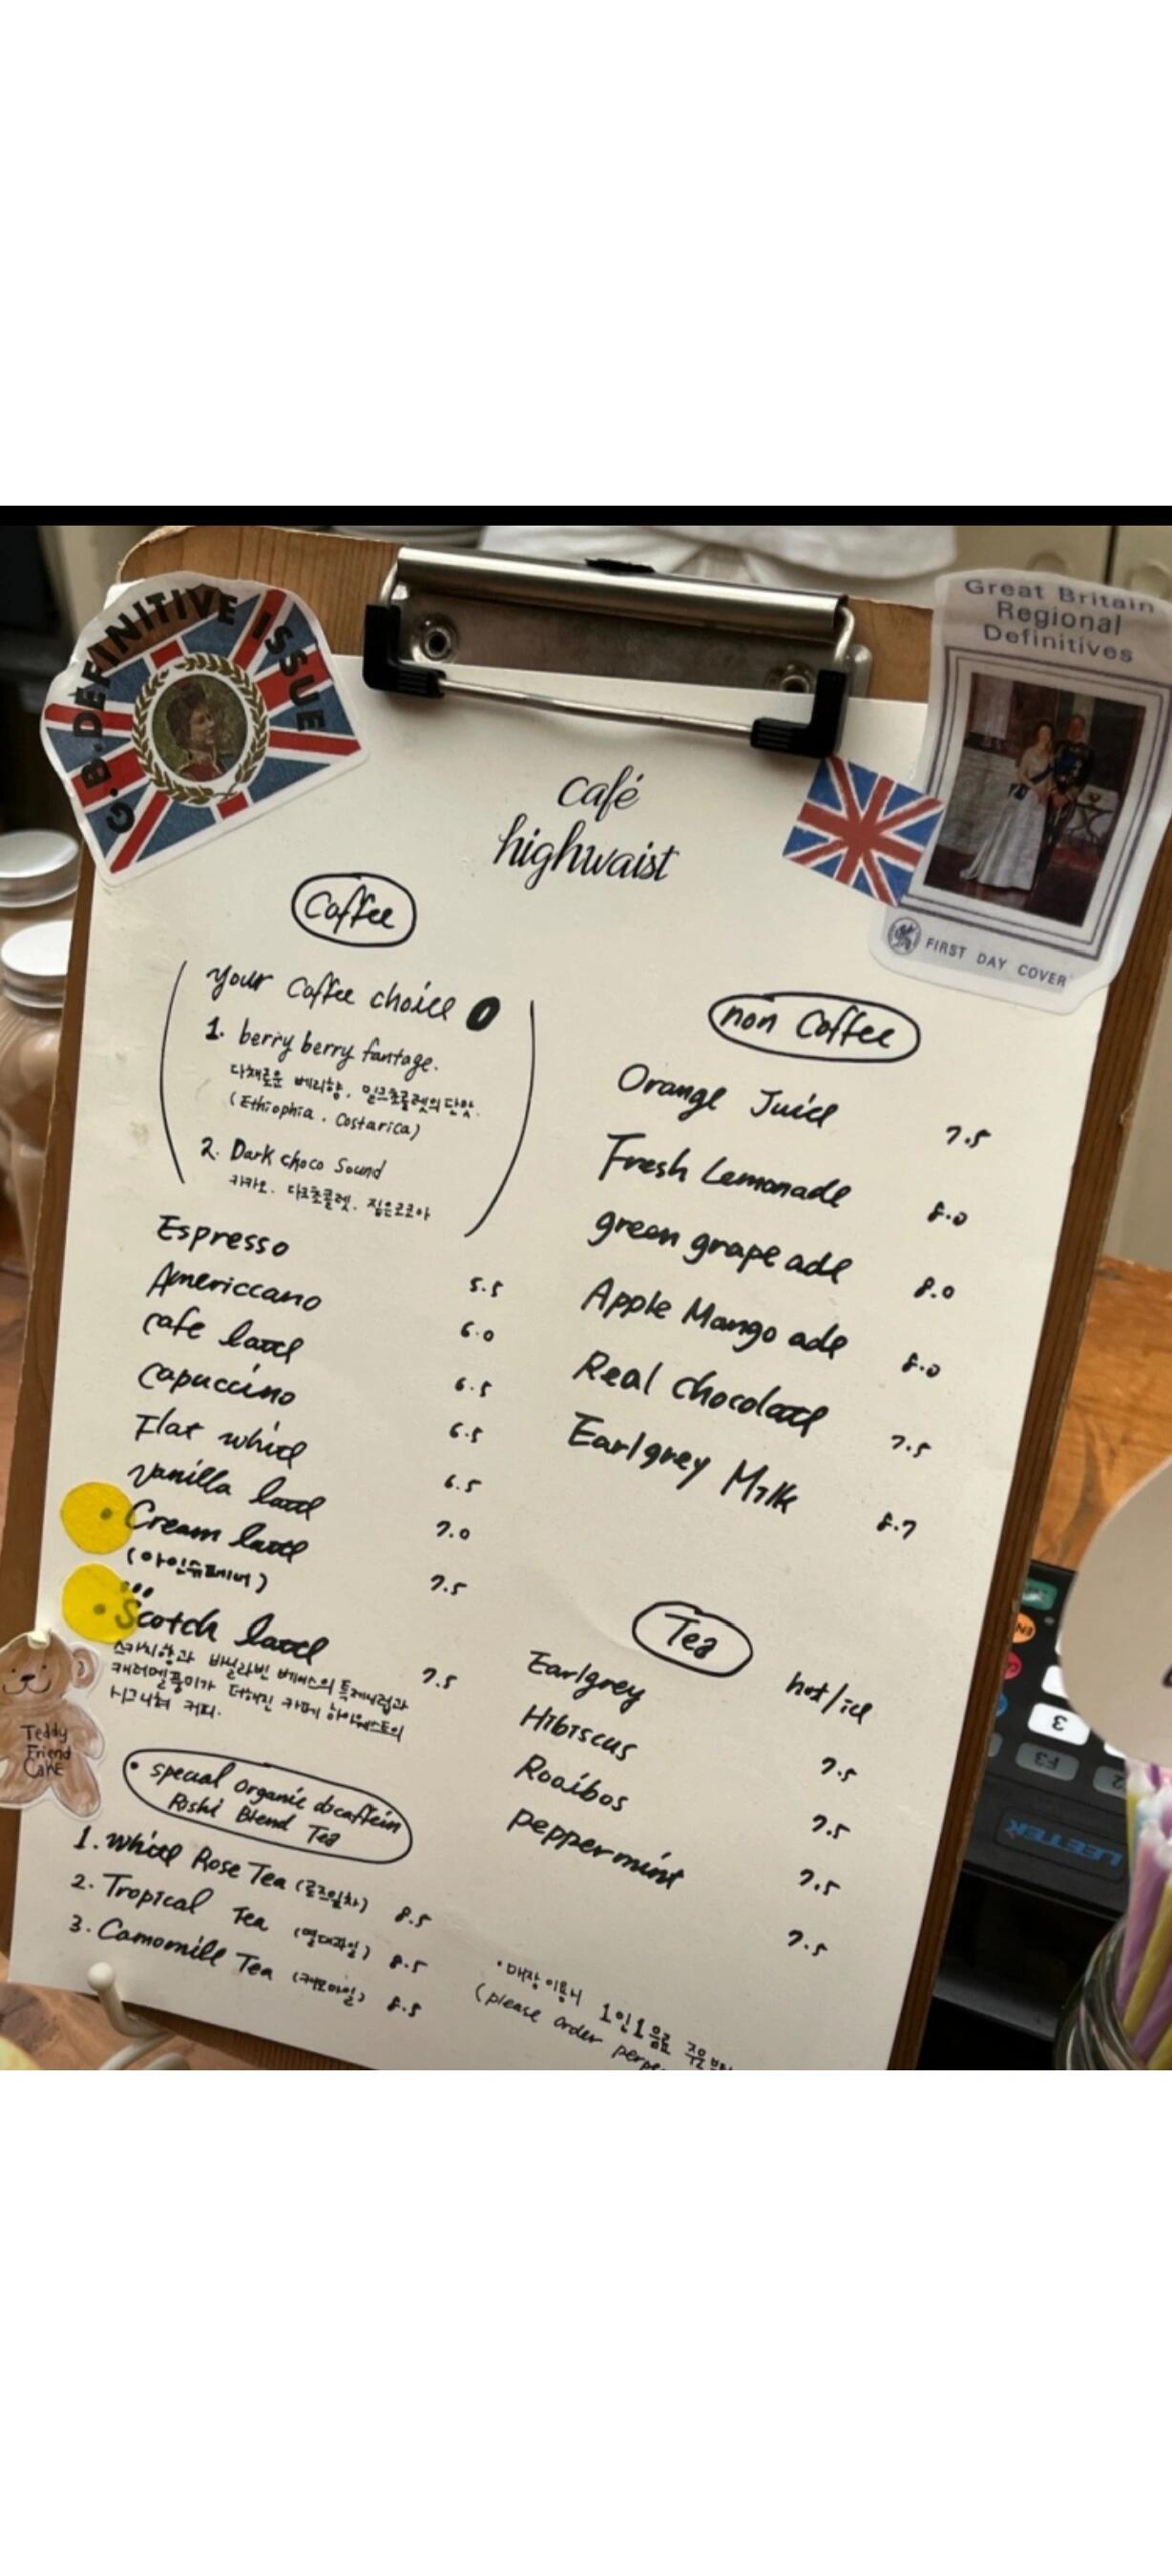 G.B. DEFINITIVE ISSUE
Great Britain
Regional
Definitives
FIRST DAY COVER
café
highwaist
Coffee
your Coffee choice
1. berry berry fantage.
다채로운 베리향, 밀크초콜렛의 단맛.
(Ethiophia. Costarica)
2. Dark choco Sound
카카오. 다크초콜렛. 짙은코코아
Espresso 5.5
Americcano 6.0
cafe latte 6.5
capuccino 6.5
Flat white 6.5
vanilla latte 7.0
• Cream latte 7.5
(아인슈페너)
• Scotch latte 7.5
스카치향과 바닐라빈 베이스의 특제시럽과
캐러멜풍미가 더해진 카페 하이웨스트의
시그니처 커피.
Teddy
Friend
Cake
• special organic decaffein
Rishi Blend Tea
1. White Rose Tea (로즈잎차) 8.5
2. Tropical Tea (열대과일) 8.5
3. Camomile Tea (캐모마일) 8.5
non Coffee
Orange Juice 7.5
Fresh Lemonade 8.0
green grape ade 8.0
Apple Mango ade 8.0
Real chocolate 7.5
Earlgrey Milk 8.7
Tea hot/ice
Earlgrey 7.5
Hibiscus 7.5
Rooibos 7.5
peppermint 7.5
• 매장이용시 1인1음료 주문
(please order
LEETEK
F3